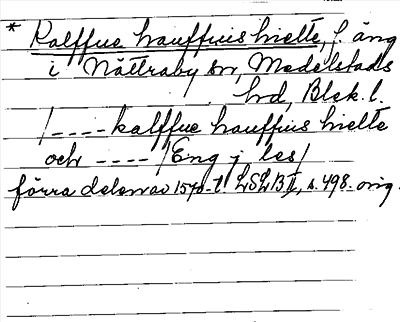 * Kalffue hauffuis hielte, f. äng
i Nättraby sn, Medelstads
hd, Blek. l.
/---- kalffue hauffuis hielte
och ---- /Eng j les/
förra delen av 1570-t. LSLB II, s. 498. orig.